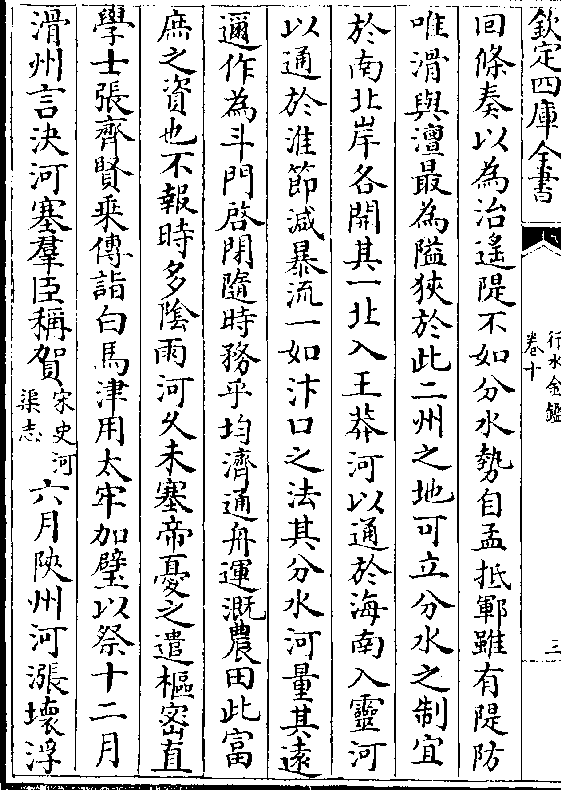 欽定四庫全書
行水金鑑
卷十
三
回條奏以為治遙隄不如分水勢自孟抵鄆雖有隄防
唯滑與澶最為隘狹於此二州之地可立分水之制宜
於南北岸各開其一北入王莽河以通於海南入靈河
以通於淮節減暴流一如汴口之法其分水河量其遠
邇作為斗門啓閉隨時務乎均濟通舟運溉農田此富
庶之資也不報時多隂雨河久未塞帝憂之遣樞密直
學士張齊賢乘傳詣白馬津用太牢加璧以祭十二月
滑州言決河塞羣臣稱賀宋史河渠志六月陜州河漲壞浮